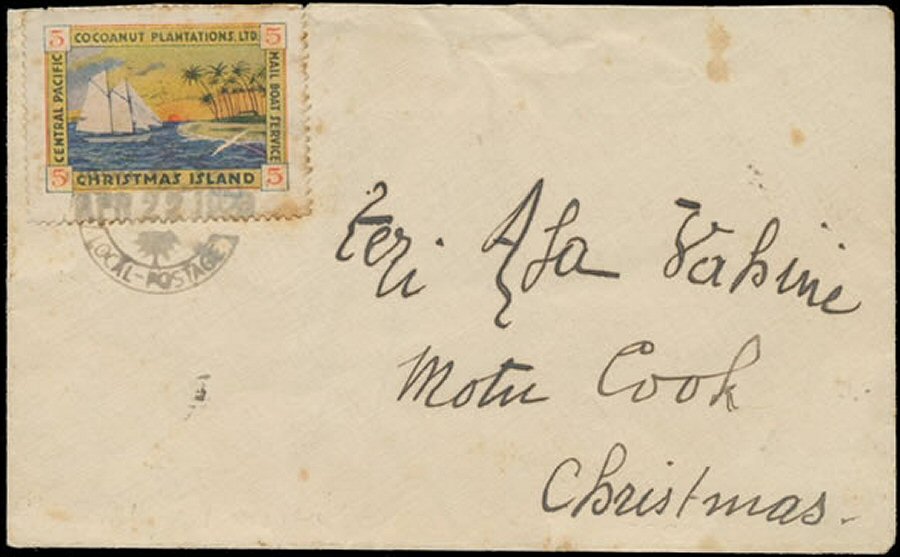 5 COCOANUT PLANTATIONS. LTD. 5
CENTRAL PACIFIC
MAIL BOAT SERVICE
5 CHRISTMAS ISLAND 5
APR 22
LOCAL-POSTAGE
Vahine
Motu Cook
Christmas.